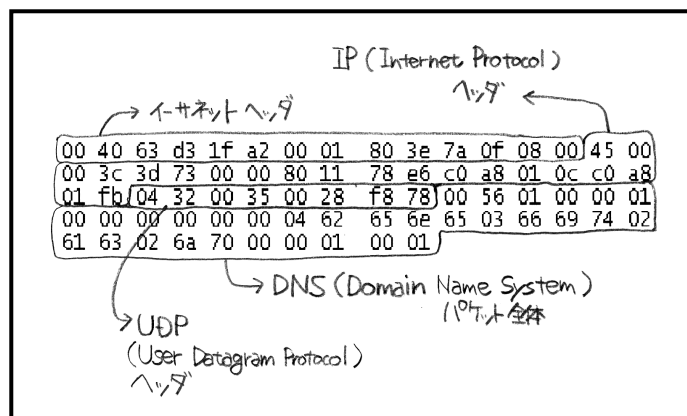 IP (Internet Protocol)
ヘッダ
イーサネット ヘッダ
00 40 63 d3 1f a2 00 01 80 3e 7a 0f 08 00 45 00
00 3c 3d 73 00 00 80 11 78 e6 c0 a8 01 0c c0 a8
01 fb 04 32 00 35 00 28 f8 78 00 56 01 00 00 01
00 00 00 00 00 00 04 62 65 6e 65 03 66 69 74 02
61 63 02 6a 70 00 00 01 00 01
DNS (Domain Name System)
パケット全体
UDP
(User Datagram Protocol)
ヘッダ